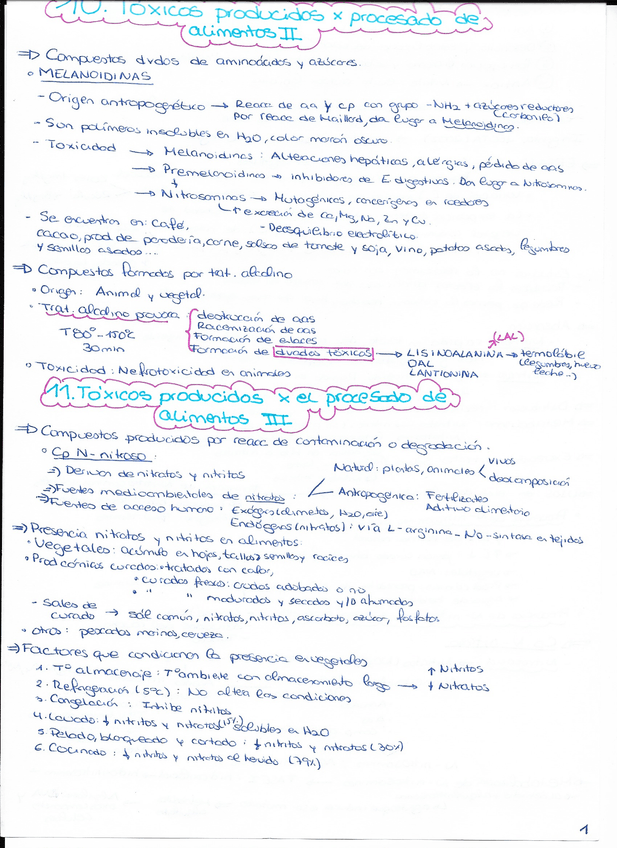 10. TÓXICOS producidos x procesado de
alimentos II
⇒ Compuestos dvdos de aminoácidos y azúcares.
◦ MELANOIDINAS
- Origen antropogénico → Reacc de aa y cp con grupo -NH2 + azúcares reductores
(carbonilo)
por reacc de Maillard, da lugar a Melanoidinas.
- Son polímeros insolubles en H2O, color marrón oscuro.
- Toxicidad → Melanoidinas: Alteraciones hepáticas, alergias, pérdida de aas
→ Premelanoidinas → inhibidores de E digestivas. Dan lugar a Nitrosaminas.
→ Nitrosaminas → Mutagénicas, cancerígenas en roedores
↑ excreción de Ca, Mg, Na, Zn y Cu.
- Desequilibrio electrolítico
- Se encuentran en: Café,
cacao, prod de panadería, carne, salsas de tomate y soja, vino, patatas asadas, legumbres
y semillas asadas...
⇒ Compuestos formados por trat. alcalino
◦ Origen: Animal y vegetal.
◦ Trat. alcalino provoca: destrucción de aas
Racemización de aas
Tª 80º-150ºC
Formación de enlaces
(LAL)
30 min
Formación de dvados tóxicos → LISINOALANINA → termolábile
(legumbres, huevo
leche..)
DAL
LANTIONINA
◦ Toxicidad: Nefrotoxicidad en animales
11. Tóxicos producidos x el procesado de
alimentos III
⇒ Compuestos producidos por reacc de contaminación o degradación.
◦ Cp N-nitroso:
⇒ Derivan de nitratos y nitritos
Natural: plantas, animales < vivos
descomposición
⇒ Fuentes medioambientales de nitratos:
Antropogénica: Fertilizantes
Aditivo alimentario
⇒ Fuentes de acceso humano: Exógeras (alimentos, H2O, aire)
Endógeras (nitratos): vía L-arginina-No-sintasa en tejidos
⇒ Presencia nitratos y nitritos en alimentos:
◦ Vegetales: acúmulo en hojas, tallos > semillas y raíces
◦ Prod cárnicos curados: • tratados con calor,
• curados fresco: crudos adobados o no
• " " madurados y secados y/o ahumados
- Sales de
curado → sal común, nitratos, nitritos, ascorbato, azúcar, fosfatos
◦ otros: pescados marinos, cerveza.
⇒ Factores que condicionan la presencia en vegetales
1. Tª almacenaje: Tª ambiente con almacenamiento largo → ↑ Nitritos
↓ Nitratos
2. Refrigeración (5ºC): No altera las condiciones
3. Congelación: Inhibe nitritos
4. Lavado: ↓ nitritos y nitratos (15%) solubles en H2O
5. Pelado, bloqueado y cortado: ↓ nitritos y nitratos (30%)
6. Cocinado: ↓ nitritos y nitratos al hervido (79%)
1